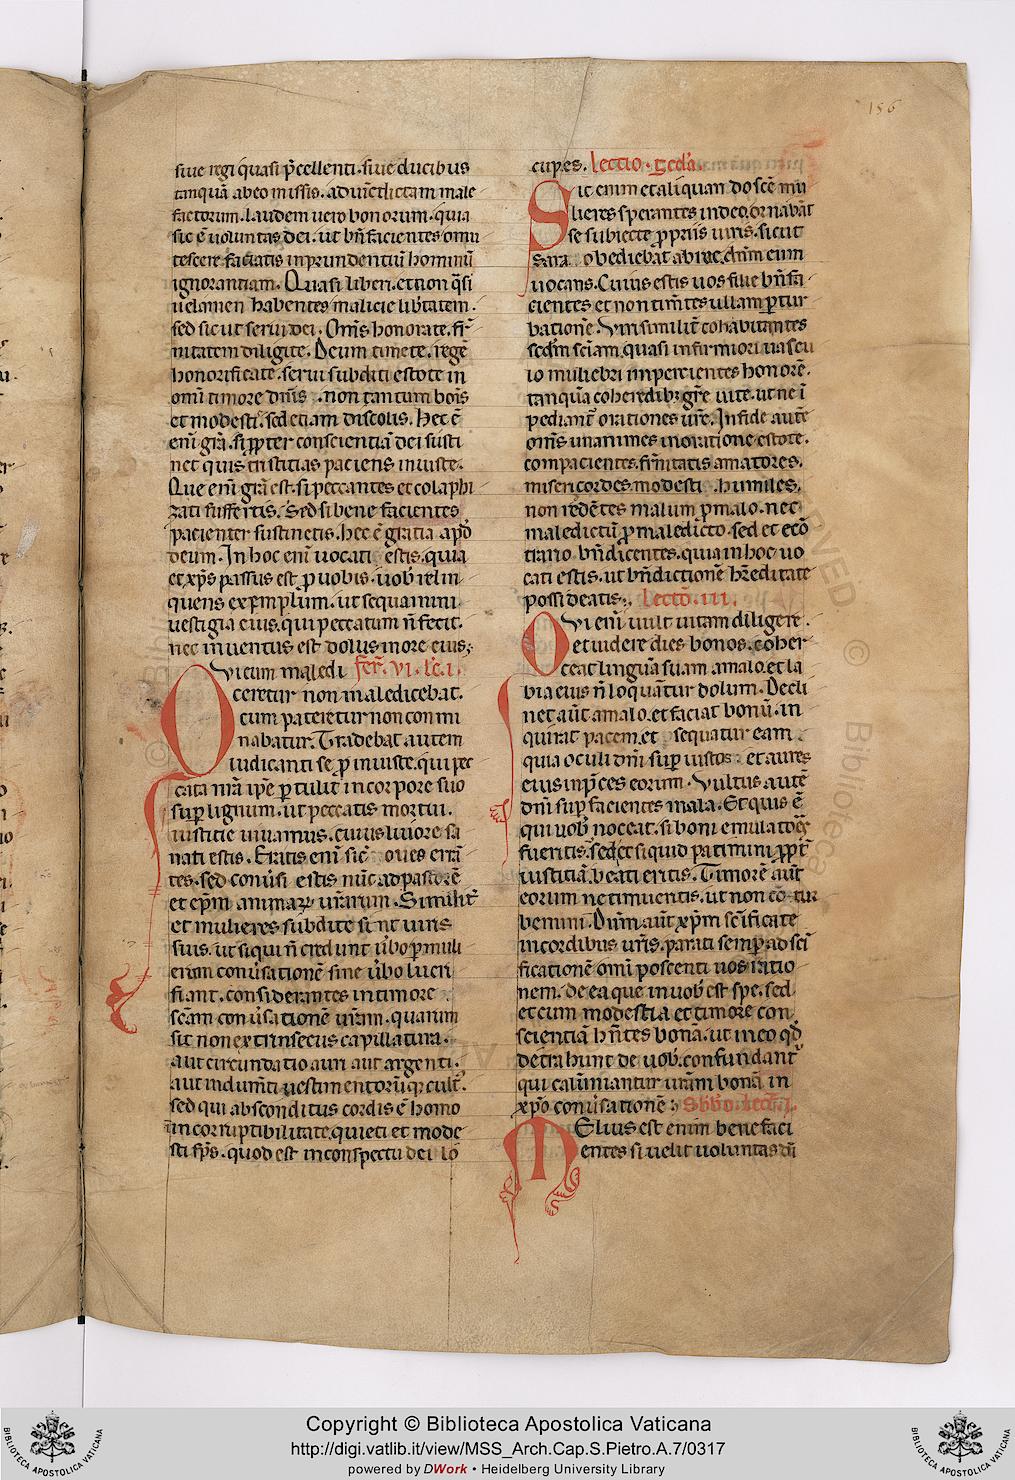 156
siue regi quasi p̄cellenti. siue ducibus
tanquā ab eo missis. ad uīdictam male
factorum. laudem uero bonorum. quia
sic ē uoluntas dei. ut bn̄facientes omu
tescere faciatis inprudentiū hominū
ignorantiam. Quasi liberi. et non q̄si
uelamen habentes malicie lib̄tatem.
sed sicut serui dei. Om̄s honorate. fr̄
nitatem diligite. Deum timete. regē
honorificate. serui subditi estote in
omī timore dn̄is. non tantum bonis
et modestis. sed etiam discolis. Hec ē
enī grā. si ꝓpter conscientiā dei susti
net quis tristitias paciens iniuste.
Que enī grā est. si peccantes et colaphi
zati suffertis. Sed si bene facientes
pacienter sustinetis. hec ē gratia apđ
deum. In hoc enī uocati estis. quia
et xp̄s passus est ꝓ uobis. uob̄ relin
quens exemplum. ut sequamini
uestigia eius. qui peccatum n̄ fecit.
nec inuentus est dolus in ore eius.
Qui cum maledi fer̄. vi. lc̄. i.
ceretur non maledicebat.
cum pateretur non commi
nabatur. Tradebat autem
iudicanti se iniuste. qui pec
cata nr̄a ip̄e ꝑtulit in corpore suo
suꝑ lignum. ut peccatis mortui.
iustitie uiuamus. cuius liuore sa
nati estis. Eratis enī sic̄ oues errā
tes. sed conūsi estis nūc ad pastorē
et ep̄m animaꝝ ur̄arum. Similit̄
et mulieres subdite sint uiris
suis. ut si qui n̄ credunt ūbo ꝑ muli
erum conūsationē sine ūbo lucri
fiant. considerantes in timore
scām conūsationē ur̄am. quarum
sit non extrinsecus capillatura.
aut circundatio auri aut argenti.
aut indumt̄i uestimentorū cult̄.
sed qui absconditus cordis ē homo
in corruptibilitate. quieti et mode
sti sp̄s. quod est in conspectu dei lo
cuples. Lectio. scd̄a.
Sic enim et aliquando scē mu
lieres sperantes in deo. ornabāt
se subiecte ꝓpriis uiris. sicut
sara obediebat abrae. dn̄m eum
uocans. Cuius estis uos filie bn̄fa
cientes et non tim̄tes ullam ꝑtur
bationē. Viri similit̄ cohabitantes
scd̄m sci͂am. quasi infirmiori uascu
lo muliebri impercientes honorē.
tanquā coheredibꝫ gr̄e uite. ut ne ī
pediant̄ orationes ur̄e. In fide autē
om̄s unanimes in oratione estote.
compacientes. fr̄nitatis amatores.
misericordes. modesti. humiles.
non redētes malum ꝓ malo. nec
maledictū ꝓ maledicto. sed et ecō
trario bn̄dicentes. quia in hoc uo
cati estis. ut bn̄dictionē h̄reditate
possideatis. Lectō. iii.
Qui enī uult uitam diligere.
et uidere dies bonos. coher
ceat linguā suam a malo. et la
bia eius n̄ loquātur dolum. Decli
net aūt a malo. et faciat bonū. in
quirat pacem. et sequatur eam.
quia oculi dn̄i suꝑ iustos. et aures
eius in p̄ces eorum. Vultus autē
dn̄i suꝑ facientes mala. Et quis ē
qui uob̄ noceat. si boni emulatores
fueritis. sed et si quid patimini ꝓpt̄
iustitiā. beati eritis. Timorē aūt
eorum ne timueritis. ut non cōtur
bemini. Dn̄m aūt xp̄m sc̄ificate
in cordibus ur̄is. parati semꝑ ad
omī poscenti uos ratio
nem. de ea que in uob̄ est spe. sed
et cum modestia et timore con
scientiā hn̄tes bonā. ut in eo qđ
detrahunt de uob̄. confundant̄
qui calūniantur ur̄am bonā in
xp̄o conūsationē. Sab̄bo. Lectō. i.
Melius est enim benefaci
entes si uelit uoluntas dī
Copyright © Biblioteca Apostolica Vaticana
http://digi.vatlib.it/view/MSS_Arch.Cap.S.Pietro.A.7/0317
powered by DWork • Heidelberg University Library